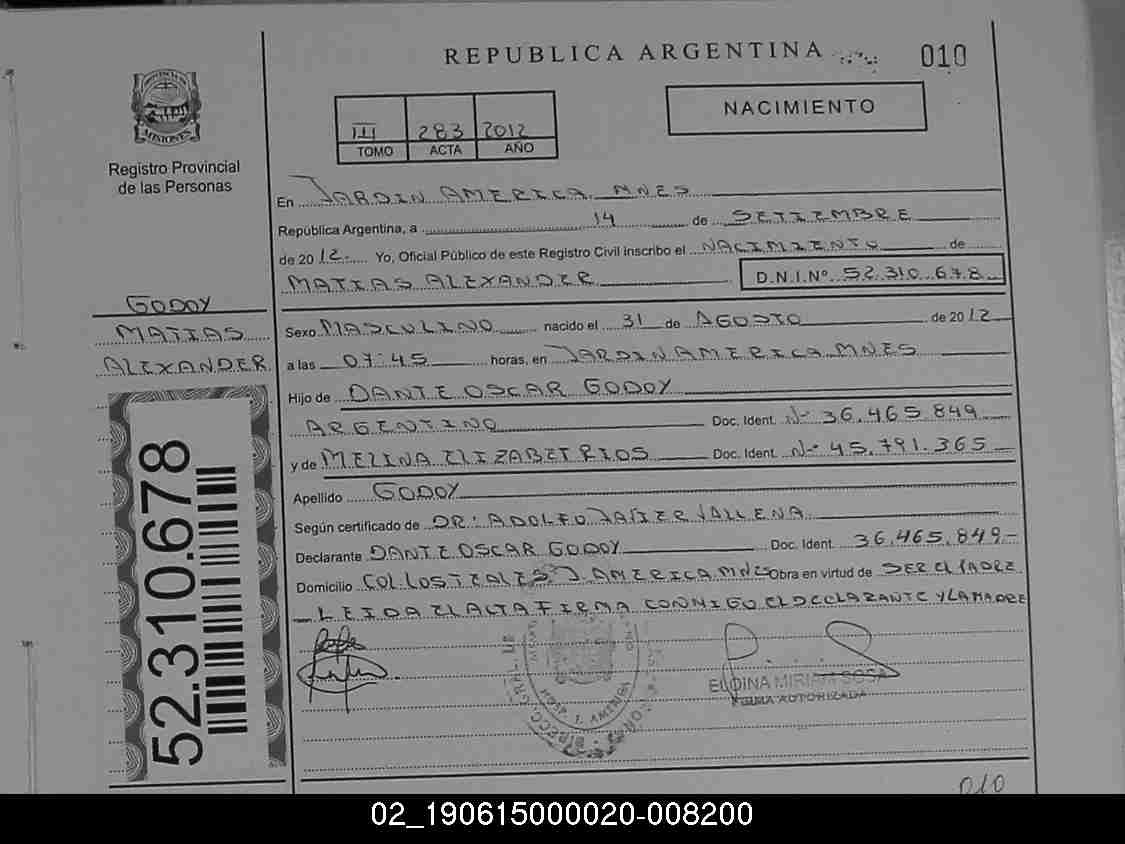 REPUBLICA ARGENTINA
010
PROVINCIA DE
MISIONES
Registro Provincial
de las Personas
III 283 2012
TOMO ACTA AÑO
NACIMIENTO
En JARDIN AMERICA MNES
República Argentina, a 14 de SETIEMBRE
de 2012. Yo, Oficial Público de este Registro Civil inscribo el NACIMIENTO de
MATIAS ALEXANDER D.N.I.Nº 52.310.678
GODOY
MATIAS
ALEXANDER
Sexo MASCULINO nacido el 31 de AGOSTO de 2012
a las 07:45 horas, en JARDIN AMERICA MNES
Hijo de DANTE OSCAR GODOY
ARGENTINO Doc. Ident. Nº 36.465.849
y de MELINA ELIZABET RIOS Doc. Ident. Nº 45.791.365
Apellido GODOY
Según certificado de DR: ADOLFO JAVIER VALLENA
Declarante DANTE OSCAR GODOY Doc. Ident. 36.465.849-
Domicilio COL LOS TEALES J. AMERICA MNES Obra en virtud de SER EL PADRE
LEIDA EL ACTA FIRMA CONMIGO EL DECLARANTE Y LA MADRE
52.310.678
J. AMERICA
ELDINA MIRIAM SOSA
FIRMA AUTORIZADA
010
02_190615000020-008200